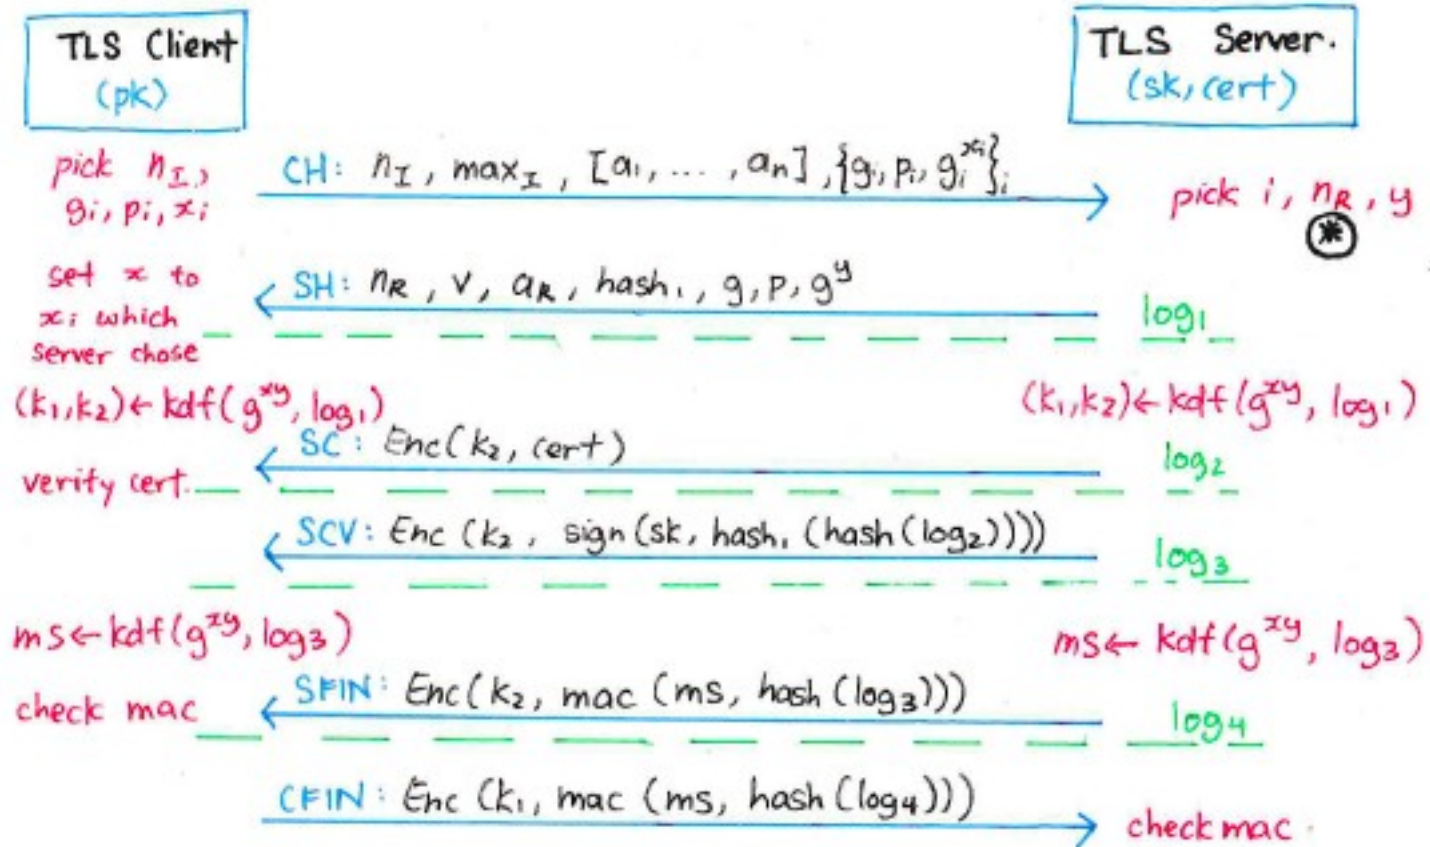 TLS Client
(pk)
TLS Server.
(sk, cert)
pick n_I,
g_i, p_i, x_i
CH: n_I, max_I, [a_1, ..., a_n], {g_i, p_i, g_i^{x_i}}_i
pick i, n_R, y
*
set x to
x_i which
server chose
SH: n_R, v, a_R, hash_1, g, p, g^y
log_1
(k_1, k_2) ← kdf(g^{xy}, log_1)
(k_1, k_2) ← kdf(g^{xy}, log_1)
SC: Enc(k_2, cert)
log_2
verify cert.
SCV: Enc(k_2, sign(sk, hash_1(hash(log_2))))
log_3
ms ← kdf(g^{xy}, log_3)
ms ← kdf(g^{xy}, log_3)
SFIN: Enc(k_2, mac(ms, hash(log_3)))
check mac
log_4
CFIN: Enc(k_1, mac(ms, hash(log_4)))
check mac.